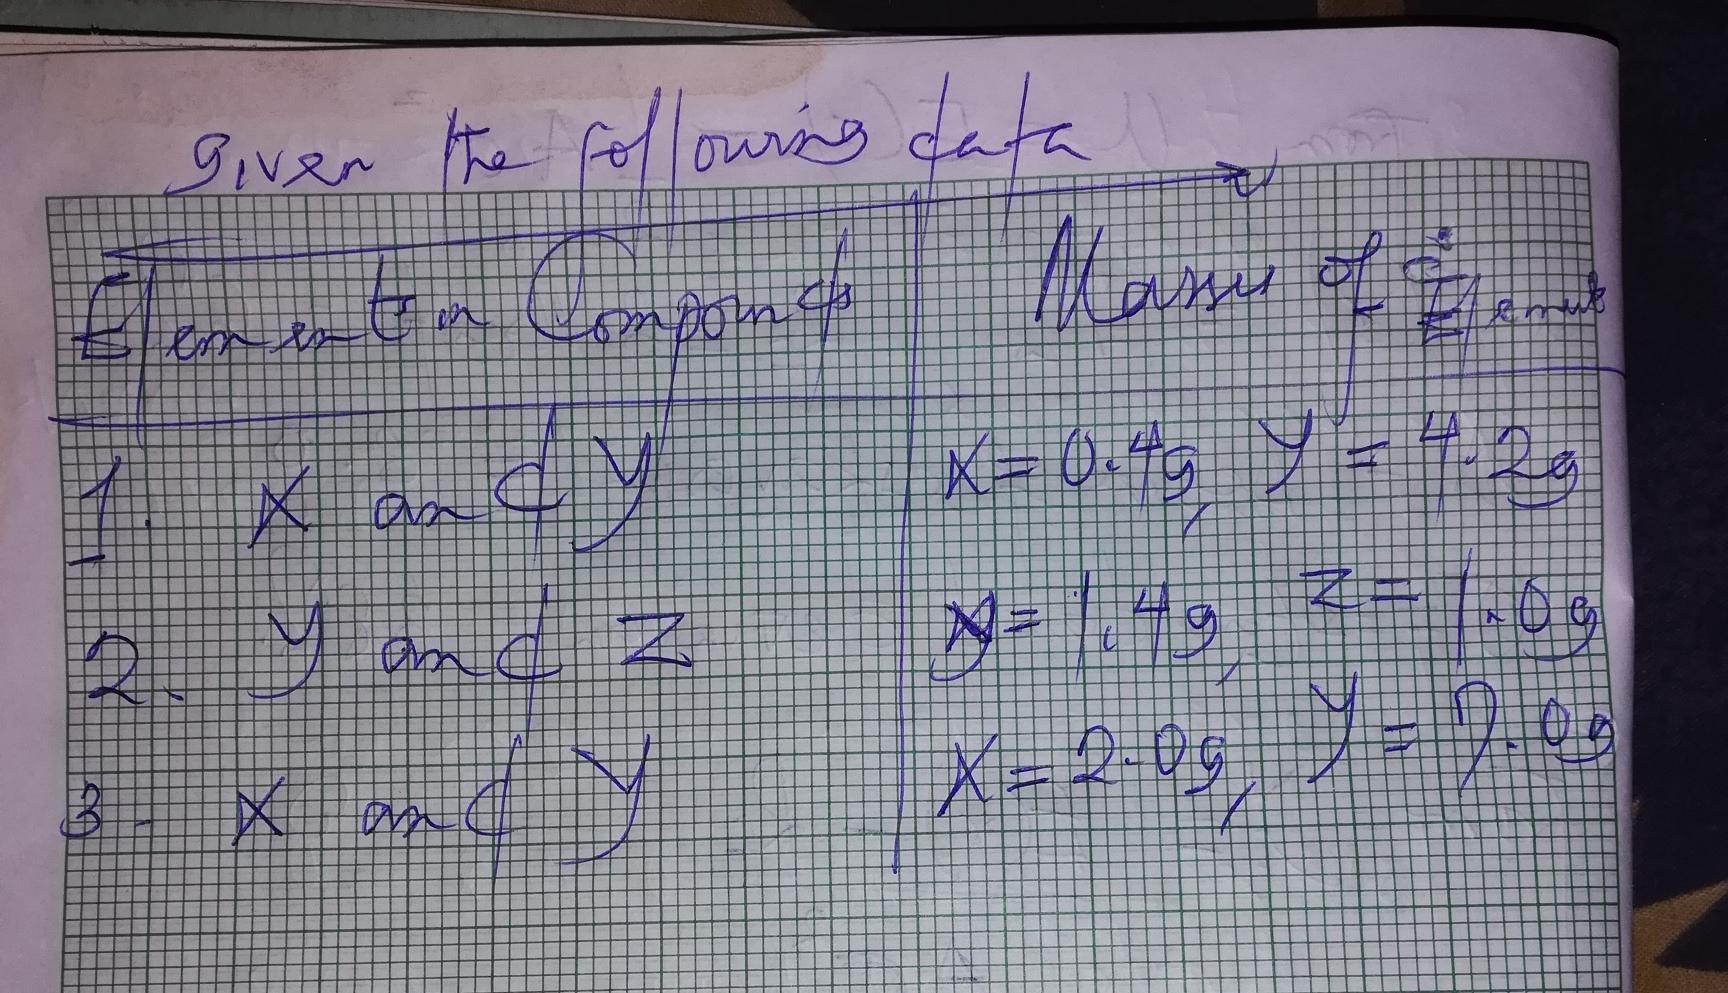 given the following data
Element in Compounds Masses of Element
1. X and y X = 0.4g, y = 4.2g
2. y and Z y = 1.4g, Z = 1.0g
3. X and y X = 2.0g, y = 7.0g